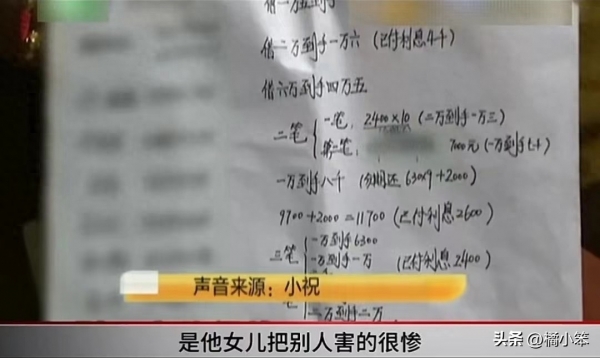 借一万五到手
借二万到手一万六 (已付利息4千)
借六万到手四万五
二笔 一笔: 2400×10 (二万到手一万三)
第二笔: 7000元 (一万到手七千)
一万到手八千 (分期还 630×9+2000)
9700+2000=11700 (已付利息2600)
三笔 一万到手6300
一万到手一万 (已付利息2400)
二万到手二万
声音来源：小祝
是他女儿把别人害的很惨
头条 @橘小笨